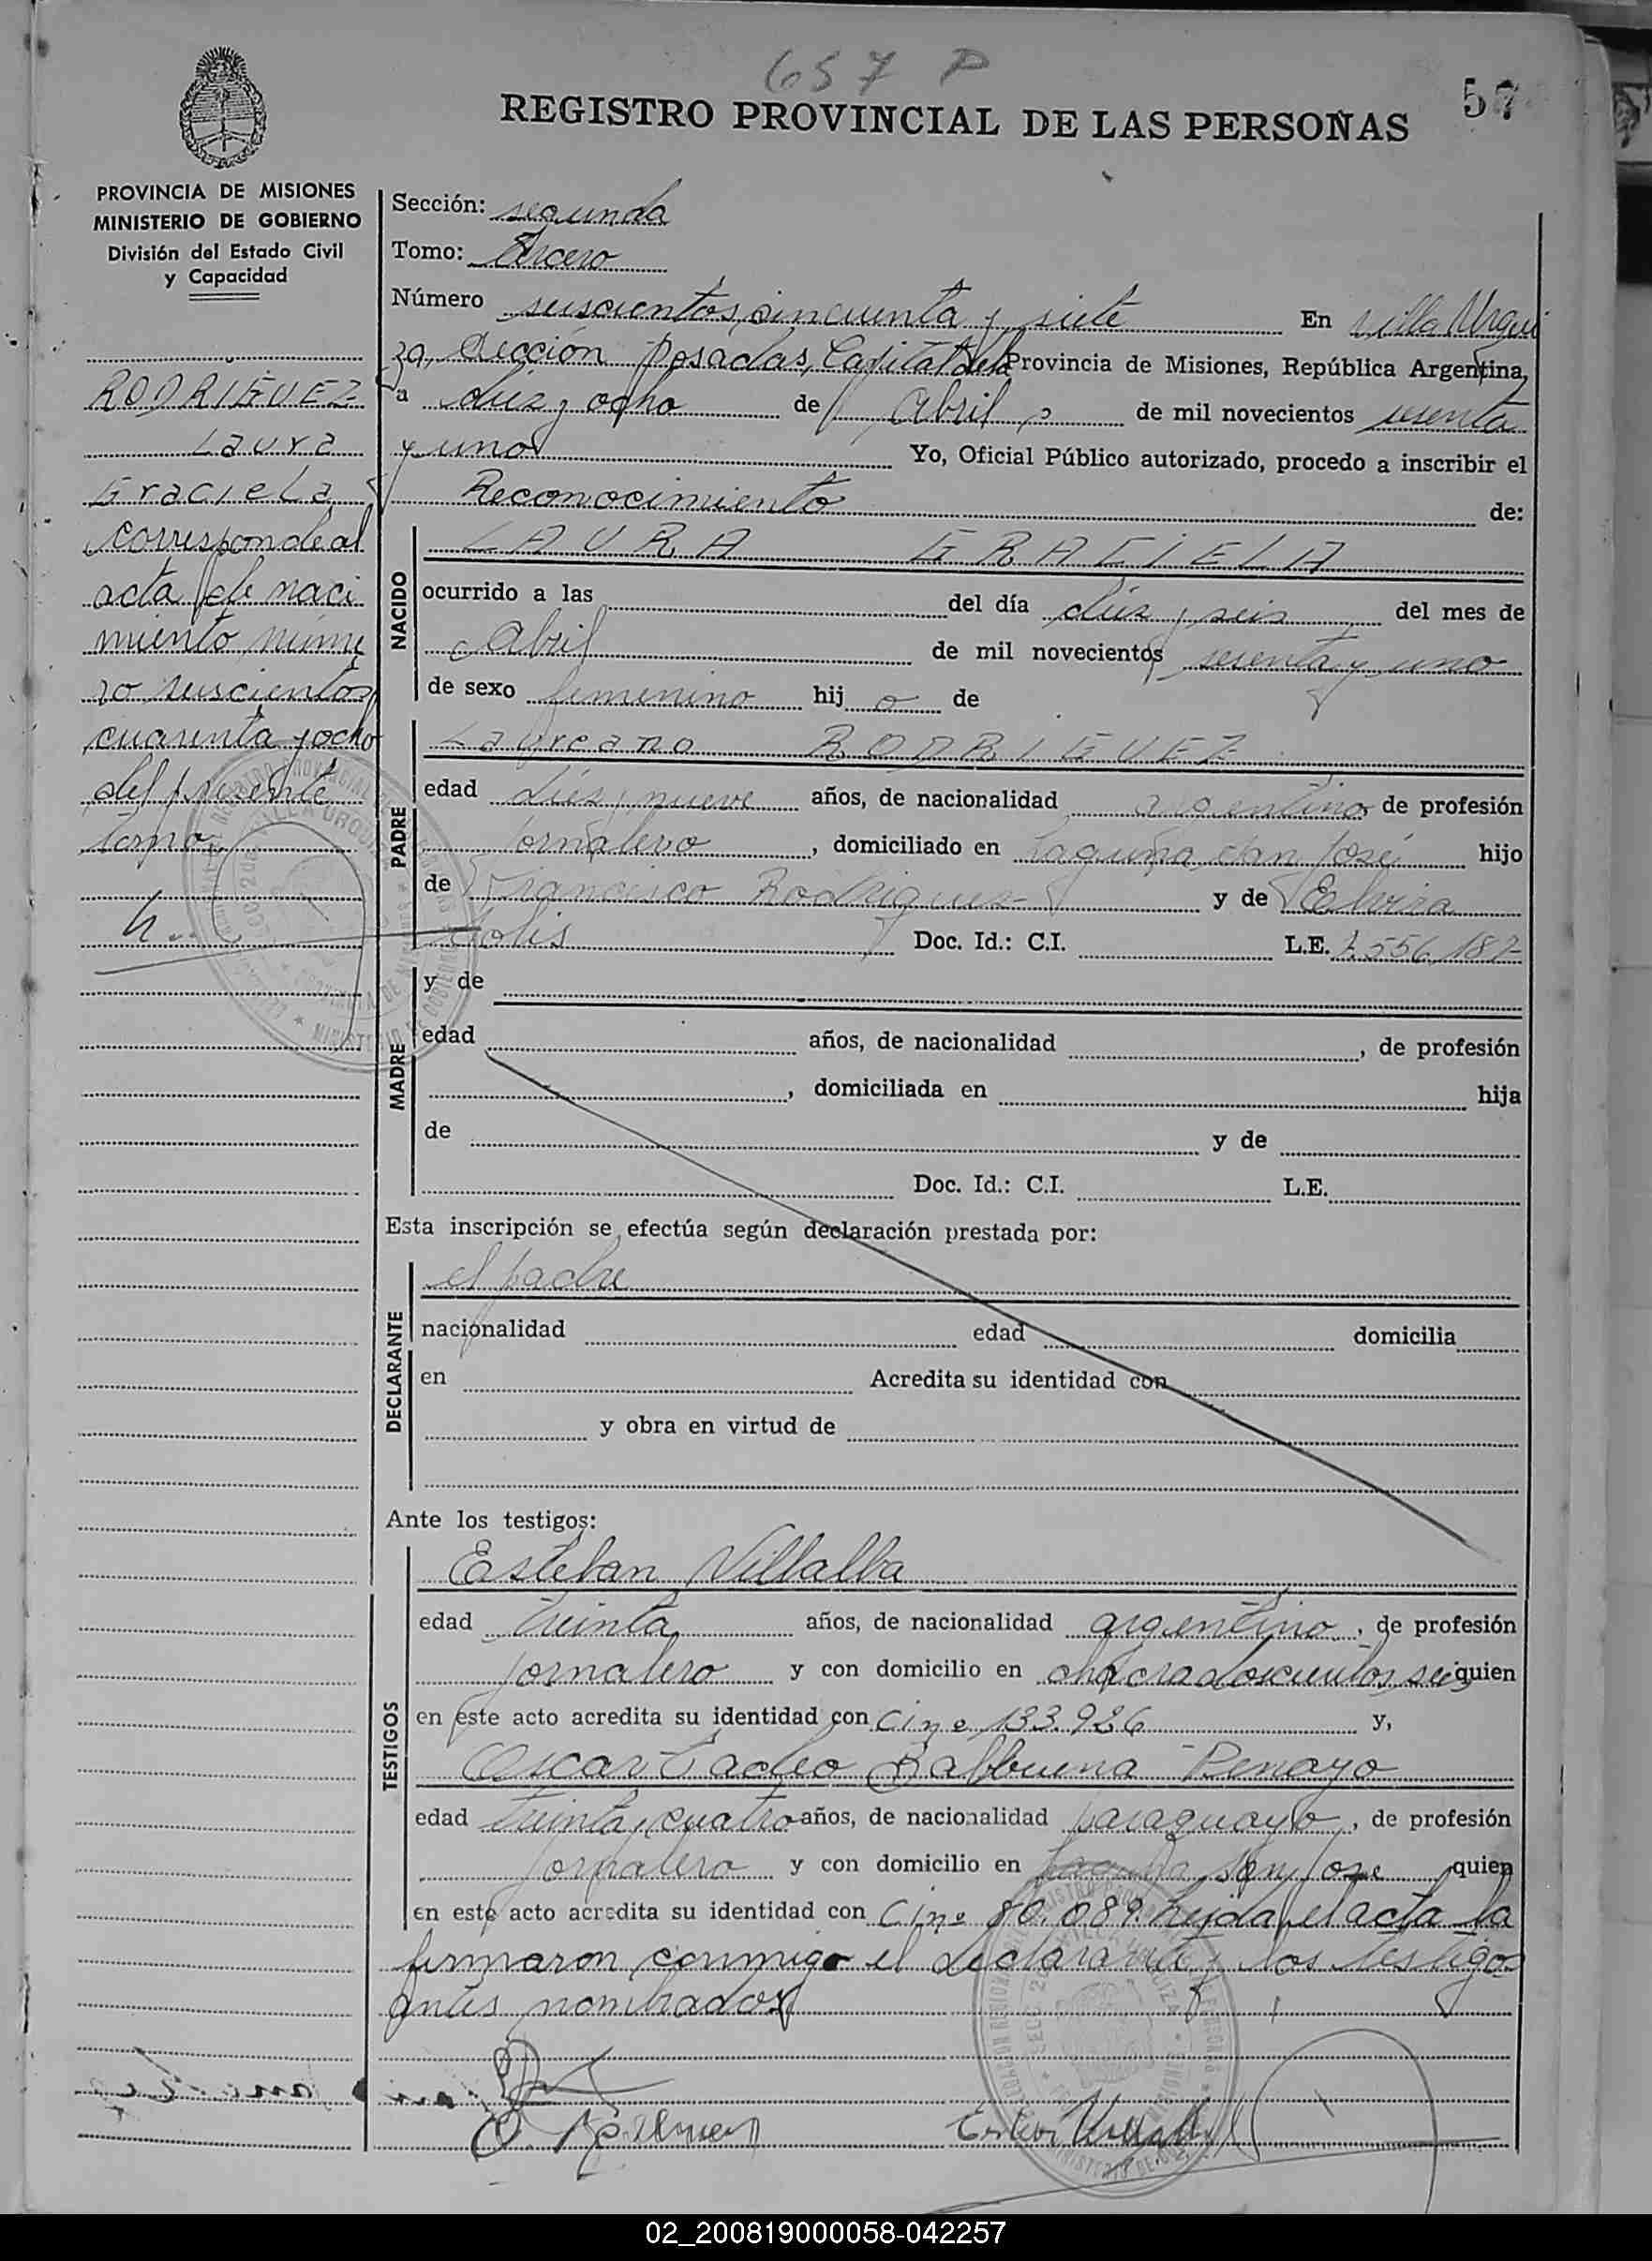 657 P
57
REGISTRO PROVINCIAL DE LAS PERSONAS
PROVINCIA DE MISIONES
MINISTERIO DE GOBIERNO
División del Estado Civil
y Capacidad
RODRIGUEZ
Laura
Graciela
corresponde al
acta de naci
miento núme
ro seiscientos
cuarenta y ocho
del presente
tomo
Sección: segunda
Tomo: tercero
Número seiscientos cincuenta y siete En Villa Urqui
za, sección Posadas, Capital de la Provincia de Misiones, República Argentina,
a diez y ocho de Abril, de mil novecientos sesenta
y uno Yo, Oficial Público autorizado, procedo a inscribir el
Reconocimiento de:
NACIDO
LAURA GRACIELA
ocurrido a las del día diez y seis del mes de
Abril de mil novecientos sesenta y uno
de sexo femenino hij a de
PADRE
Laureano RODRIGUEZ
edad diez y nueve años, de nacionalidad argentino, de profesión
jornalero, domiciliado en Laguna San José hijo
de Francisco Rodriguez y de Elvira
Solis Doc. Id.: C.I. L.E. 7.556.187
MADRE
y de
edad años, de nacionalidad , de profesión
, domiciliada en hija
de y de
Doc. Id.: C.I. L.E.
Esta inscripción se efectúa según declaración prestada por:
DECLARANTE
el padre
nacionalidad edad domicilia
en Acredita su identidad con
y obra en virtud de
Ante los testigos:
TESTIGOS
Esteban Villalba
edad treinta años, de nacionalidad argentino, de profesión
jornalero y con domicilio en chacra doscientos seis quien
en este acto acredita su identidad con C.I. nº 133.926 y,
Oscar Tadeo Balbuena Penayo
edad treinta y cuatro años, de nacionalidad paraguayo, de profesión
jornalero y con domicilio en Laguna San Jose quien
en este acto acredita su identidad con C.I. nº 80.089. Leida el acta la
firmaron conmigo el declarante y los testigos
antes nombrados
02_200819000058-042257